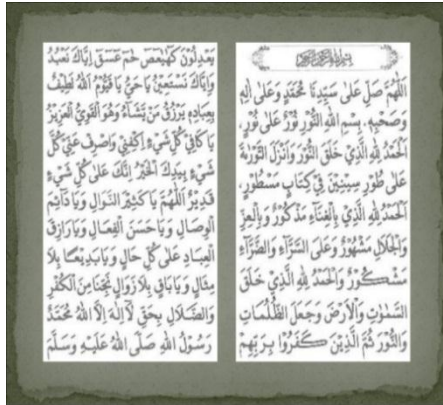 بِسْمِ اللهِ الرَّحْمٰنِ الرَّحِيْمِ
اَللّٰهُمَّ صَلِّ عَلٰى سَيِّدِنَا مُحَمَّدٍ وَعَلٰى اٰلِهٖ
وَصَحْبِهٖ. بِسْمِ اللهِ النُّوْرِ نُوْرٌ عَلٰى نُوْرٍ،
اَلْحَمْدُ لِلّٰهِ الَّذِيْ خَلَقَ النُّوْرَ وَاَنْزَلَ التَّوْرٰىةَ
عَلٰى طُوْرِ سِيْنِيْنَ فِيْ كِتَابٍ مَسْطُوْرٍ،
اَلْحَمْدُ لِلّٰهِ الَّذِيْ بِالْغِنَاءِ مَذْكُوْرٌ وَبِالْعِزِّ
وَالْجَلَالِ مَشْهُوْرٌ وَعَلَى السَّرَّآءِ وَالضَّرَّآءِ
مَشْكُوْرٌ وَالْحَمْدُ لِلّٰهِ الَّذِيْ خَلَقَ
السَّمٰوٰتِ وَالْاَرْضَ وَجَعَلَ الظُّلُمَاتِ
وَالنُّوْرَ ثُمَّ الَّذِيْنَ كَفَرُوْا بِرَبِّهِمْ
يَعْدِلُوْنَ كٓهٰيٰعٓصٓ حٰمٓ عٓسٓقٓ اِيَّاكَ نَعْبُدُ
وَاِيَّاكَ نَسْتَعِيْنُ يَا حَيُّ يَا قَيُّوْمُ اَللهُ لَطِيْفٌ
بِعِبَادِهٖ يَرْزُقُ مَنْ يَّشَآءُ وَهُوَ الْقَوِيُّ الْعَزِيْزُ
يَا كَافِيْ كُلِّ شَيْءٍ اِكْفِنِيْ وَاصْرِفْ عَنِّيْ كُلَّ
شَيْءٍ بِيَدِكَ الْخَيْرُ اِنَّكَ عَلٰى كُلِّ شَيْءٍ
قَدِيْرٌ اَللّٰهُمَّ يَا كَثِيْرَ النَّوَالِ وَيَا دَآئِمَ
الْوِصَالِ وَيَا حَسَنَ الْفِعَالِ وَيَا رَازِقَ
الْعِبَادِ عَلٰى كُلِّ حَالٍ وَيَا بَدِيْعًا بِلَا
مِثَالٍ وَيَا بَاقٍ بِلَا زَوَالٍ نَجِّنَا مِنَ الْكُفْرِ
وَالضَّلَالِ بِحَقِّ لَآ اِلٰهَ اِلَّا اللهُ مُحَمَّدٌ
رَسُوْلُ اللهِ صَلَّى اللهُ عَلَيْهِ وَسَلَّمَ